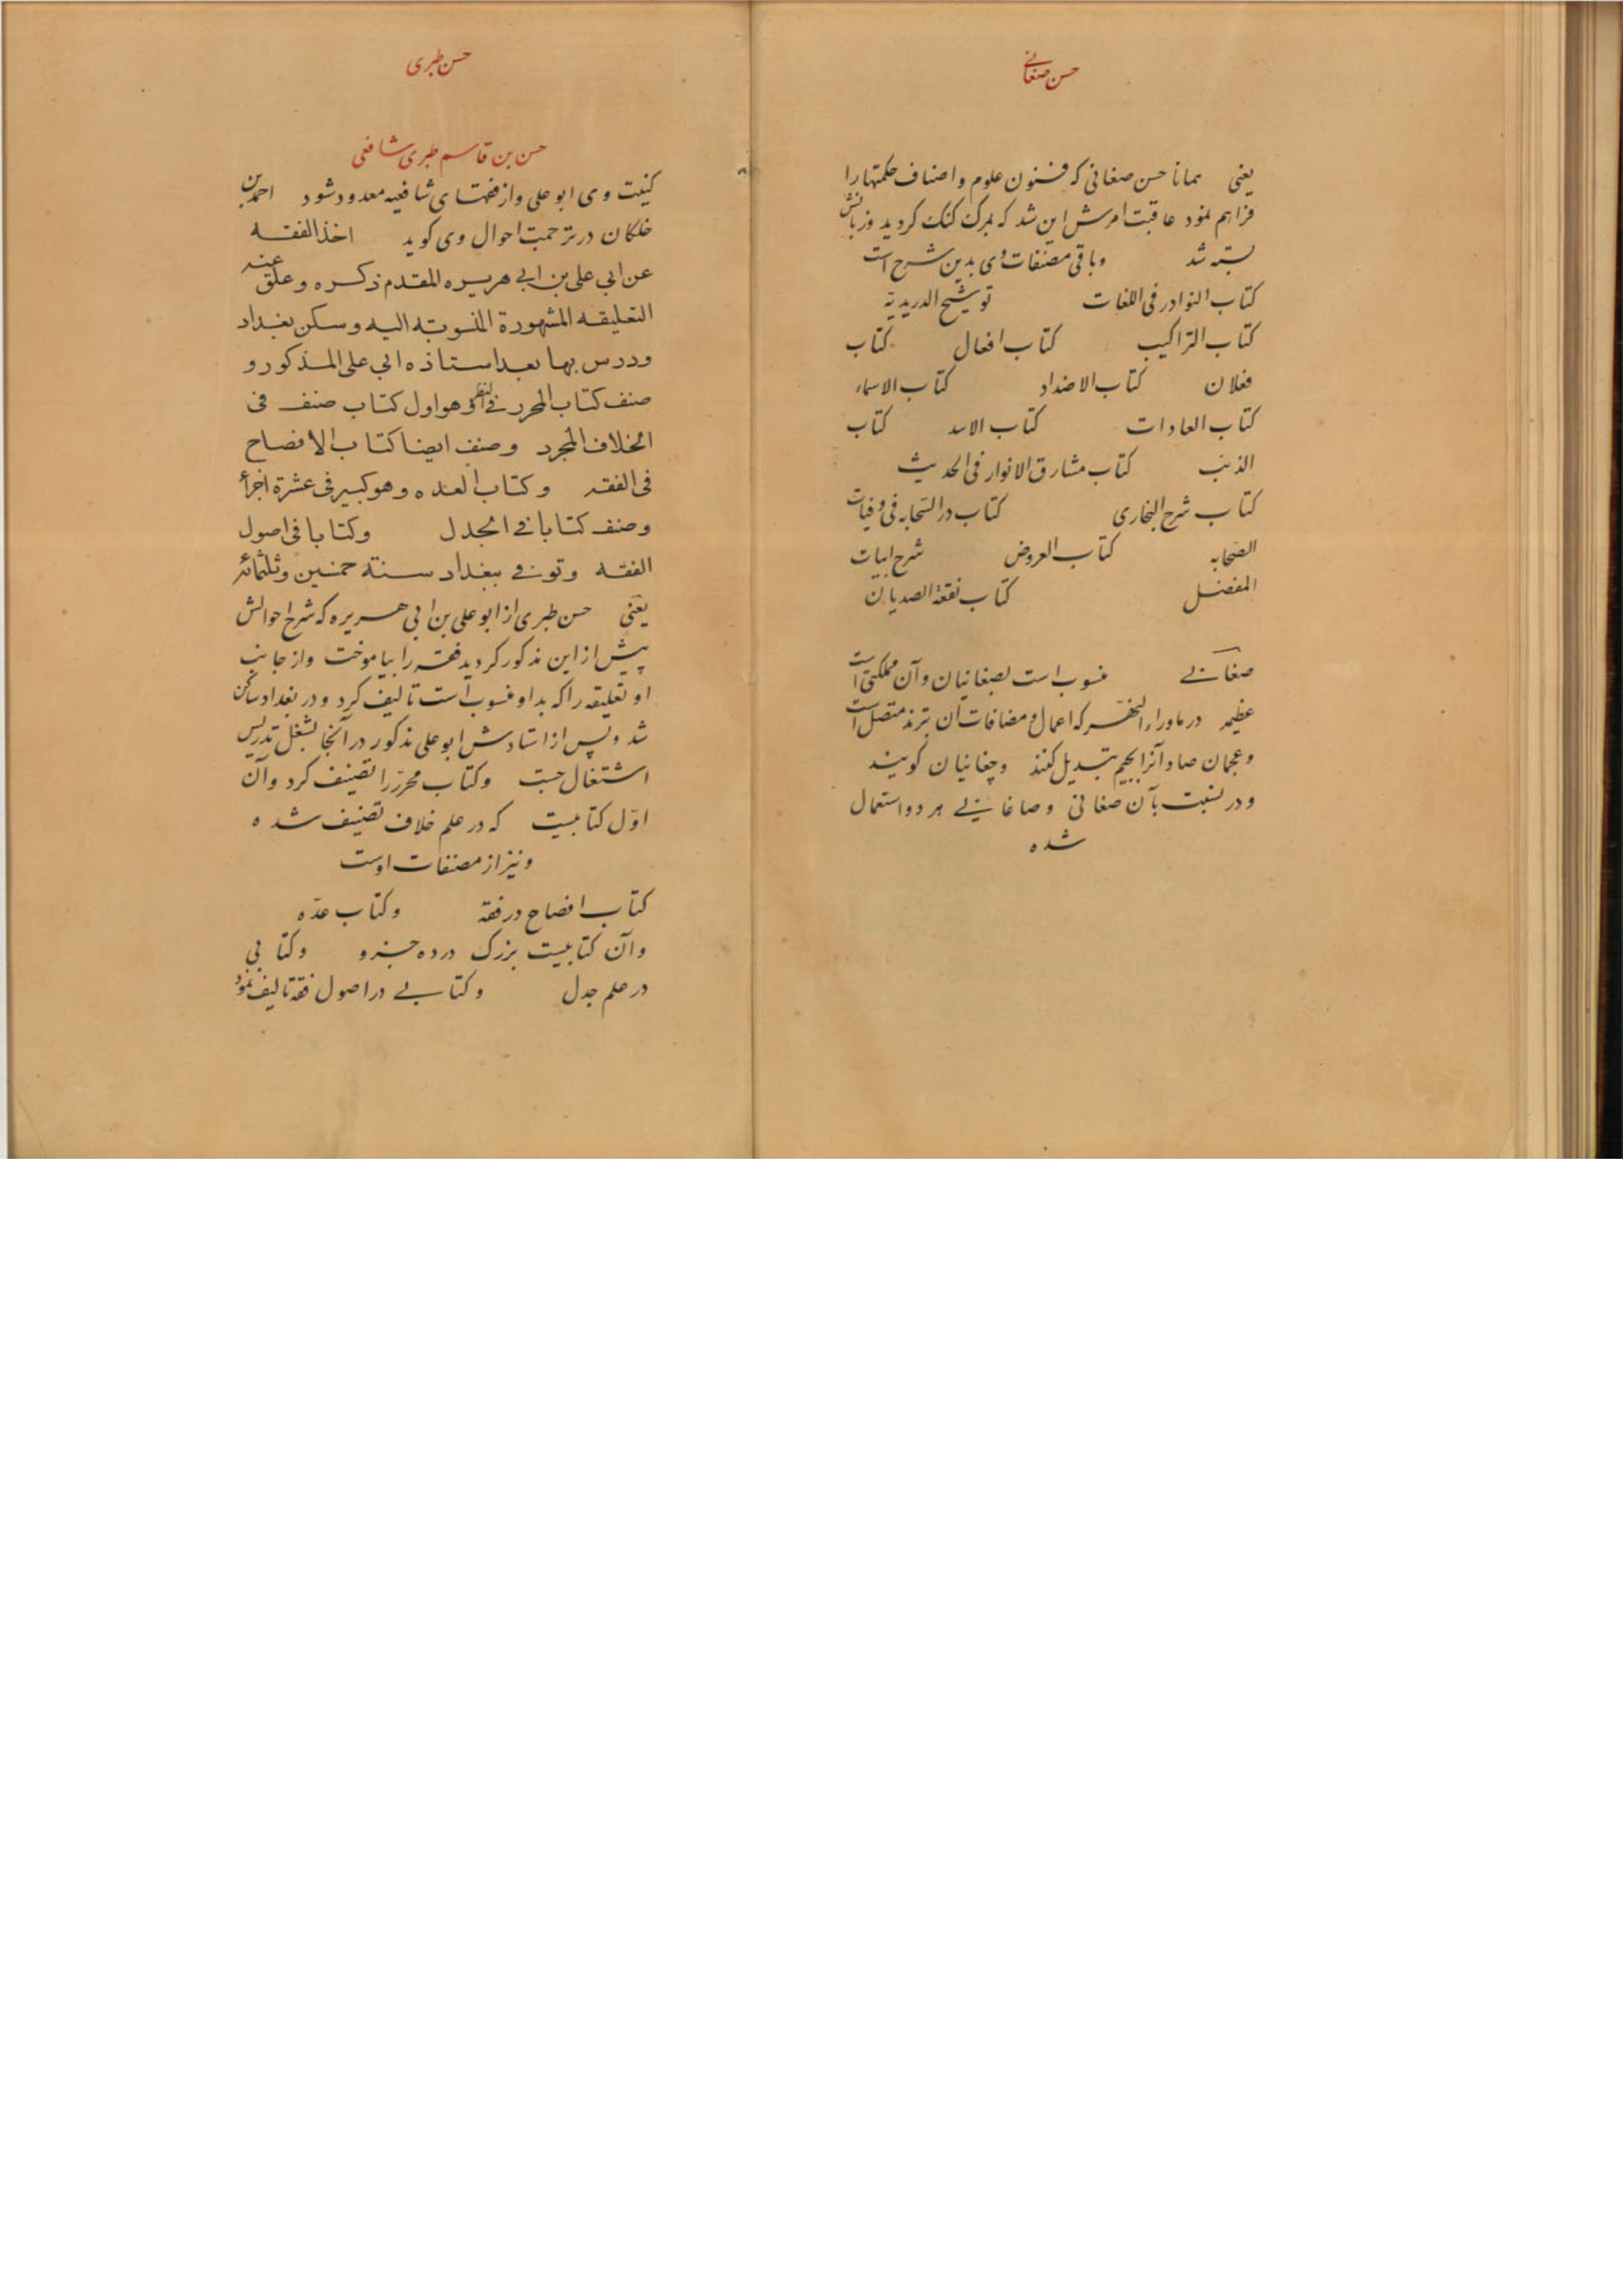 حسن صغانی
یعنی همانا حسن صغانی که فنون علوم و اصناف حکمتها را
فراهم نمود عاقبت امرش این شد که بمرک کنک کردید و زبانش
بسته شد و باقی مصنفات وی بدین شرح است
کتاب النوادر فی اللغات توشیح الدریدیة
کتاب التراکیب کتاب افعال کتاب
فعلان کتاب الاضداد کتاب الاسماء
کتاب العادات کتاب الاسد کتاب
الذئب کتاب مشارق الانوار فی الحدیث
کتاب شرح البخاری کتاب در السحابه فی وفیات
الصحابه کتاب العروض شرح ابیات
المفضل کتاب نقعة الصدیان
صغانی منسوب است بصغانیان و آن مملکتی است
عظیم در ماوراء النهر که اعمال و مضافات آن بترمذ متصل است
و عجمان صاد آنرا بجیم تبدیل کنند و چغانیان کویند
و در نسبت بآن صغانی و صاغانی هر دو استعمال
شده
حسن طبری
حسن بن قاسم طبری شافعی
کنیت وی ابو علی و از فقهای شافعیه معدود شود احمد بن
خلکان در ترجمت احوال وی کوید اخذ الفقه
عن ابی علی بن ابی هریره المقدم ذکره و علق عنه
التعلیقه المشهورة المنسوبة الیه و سکن بغداد
ودرس بها بعد استاذه ابی علی المذکور و
صنف کتاب المحرر فی النظر وهو اول کتاب صنف فی
الخلاف المجرد وصنف ایضا کتاب الافصاح
فی الفقه وکتاب العده وهو کبیر فی عشرة اجزاء
وصنف کتابا فی الجدل وکتابا فی اصول
الفقه وتوفی ببغداد سنة خمسین وثلثمائه
یعنی حسن طبری از ابو علی بن ابی هریره که شرح احوالش
پیش از این مذکور کردید فقه را بیاموخت و از جانب
او تعلیقه را که بداو منسوب است تالیف کرد و در بغداد ساکن
شد و پس از استادش ابو علی مذکور در آنجا بشغل تدریس
اشتغال جست و کتاب محرر را تصنیف کرد و آن
اول کتابیست که در علم خلاف تصنیف شده
و نیز از مصنفات اوست
کتاب افصاح در فقه و کتاب عده
و آن کتابیست بزرک در ده جزو و کتابی
در علم جدل و کتابی در اصول فقه تالیف نمود